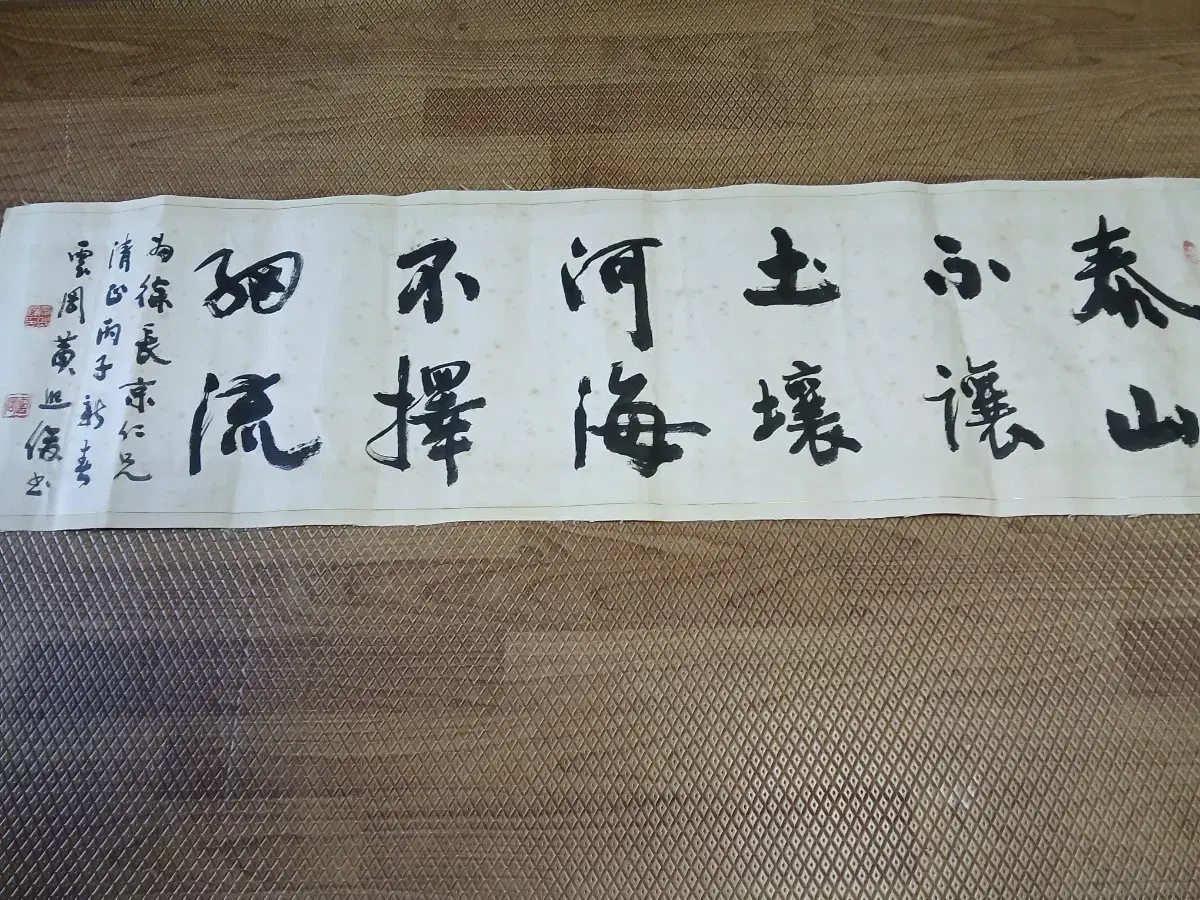 泰山
不讓
土壤
河海
不擇
細流
為徐長京仁兄
清正丙子新春
雲岡黃熙俊書